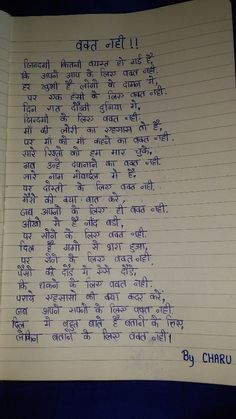 वक्त नहीं !!
जिन्दगी कितनी व्यस्त हो गई है,
कि अपने आप के लिए वक्त नहीं
हर खुशी है लोगों के दामन में,
पर एक हंसी के लिए वक्त नहीं.
दिन रात दौड़ती दुनिया में,
जिन्दगी के लिए वक्त नहीं.
माँ की लोरी का एहसास तो है,
पर माँ को माँ कहने का वक्त नहीं.
सारे रिश्तों को हम मार चुके,
अब उन्हें दफनाने का वक्त नहीं.
सारे नाम मोबाईल में हैं,
पर दोस्ती के लिए वक्त नहीं.
गैरों की क्या बात करे,
जब अपनो के लिए ही वक्त नहीं.
आंखो में है नींद बड़ी,
पर सोने के लिए वक्त नहीं.
दिल है गमो से भरा हुआ,
पर रोने के लिए वक्त नहीं.
पैसों की दौड़ में ऐसे दौड़े,
कि थकने के लिए वक्त नहीं.
पराये एहसासो की क्या कदर करें,
जब अपने सपनो के लिए वक्त नहीं
दिल में बहुत बाते है बताने के लिए,
लेकिन बताने के लिए वक्त नहीं!
By CHARU